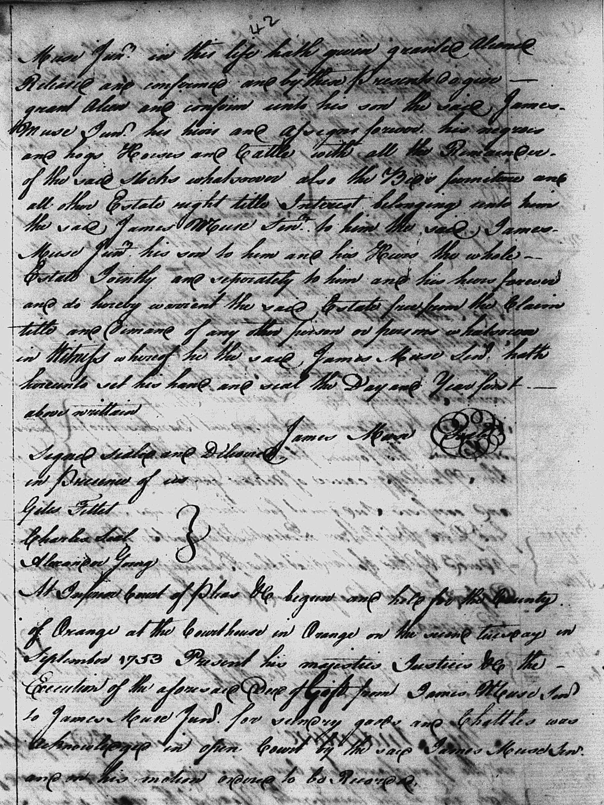 42
Muse Junr. in this life hath given granted aliened
Released and confirmed and by these presents do give —
grant alien and confirm unto his son the said James
Muse Junr. his heirs and assigns forever his negroes
and hogs Horses and Cattle with all the Remainder
of the said stocks whatsoever also the Beds furniture and
all other Estate right title Interest belonging unto him
the said James Muse Senr. to him the said James
Muse Junr. his son to him and his Heirs the whole —
Estate Jointly and seperately to him and his heirs forever
and do hereby warrent the said Estate free from the Claim
title and Demand of any other person or persons whatsoever
in Witness whereof he the said James Muse Senr. hath
hereunto set his hand and seal the Day and Year first —
above writtain
James Muse
Signed sealed and Delivered
in Presence of us
Giles Tillet
Charles
Alexander Young
At Court of Pleas &c begun and held for the County
of Orange at the Courthouse in Orange on the second tuesday in
September 1753 Present his majesties Justices &c the —
Execution of the aforesaid Deed of Gift from James Muse Senr
to James Muse Junr. for sundry goods and Chattles was
Acknowledged in open Court by the said James Muse Senr.
and on his motion ordered to be Recorded.